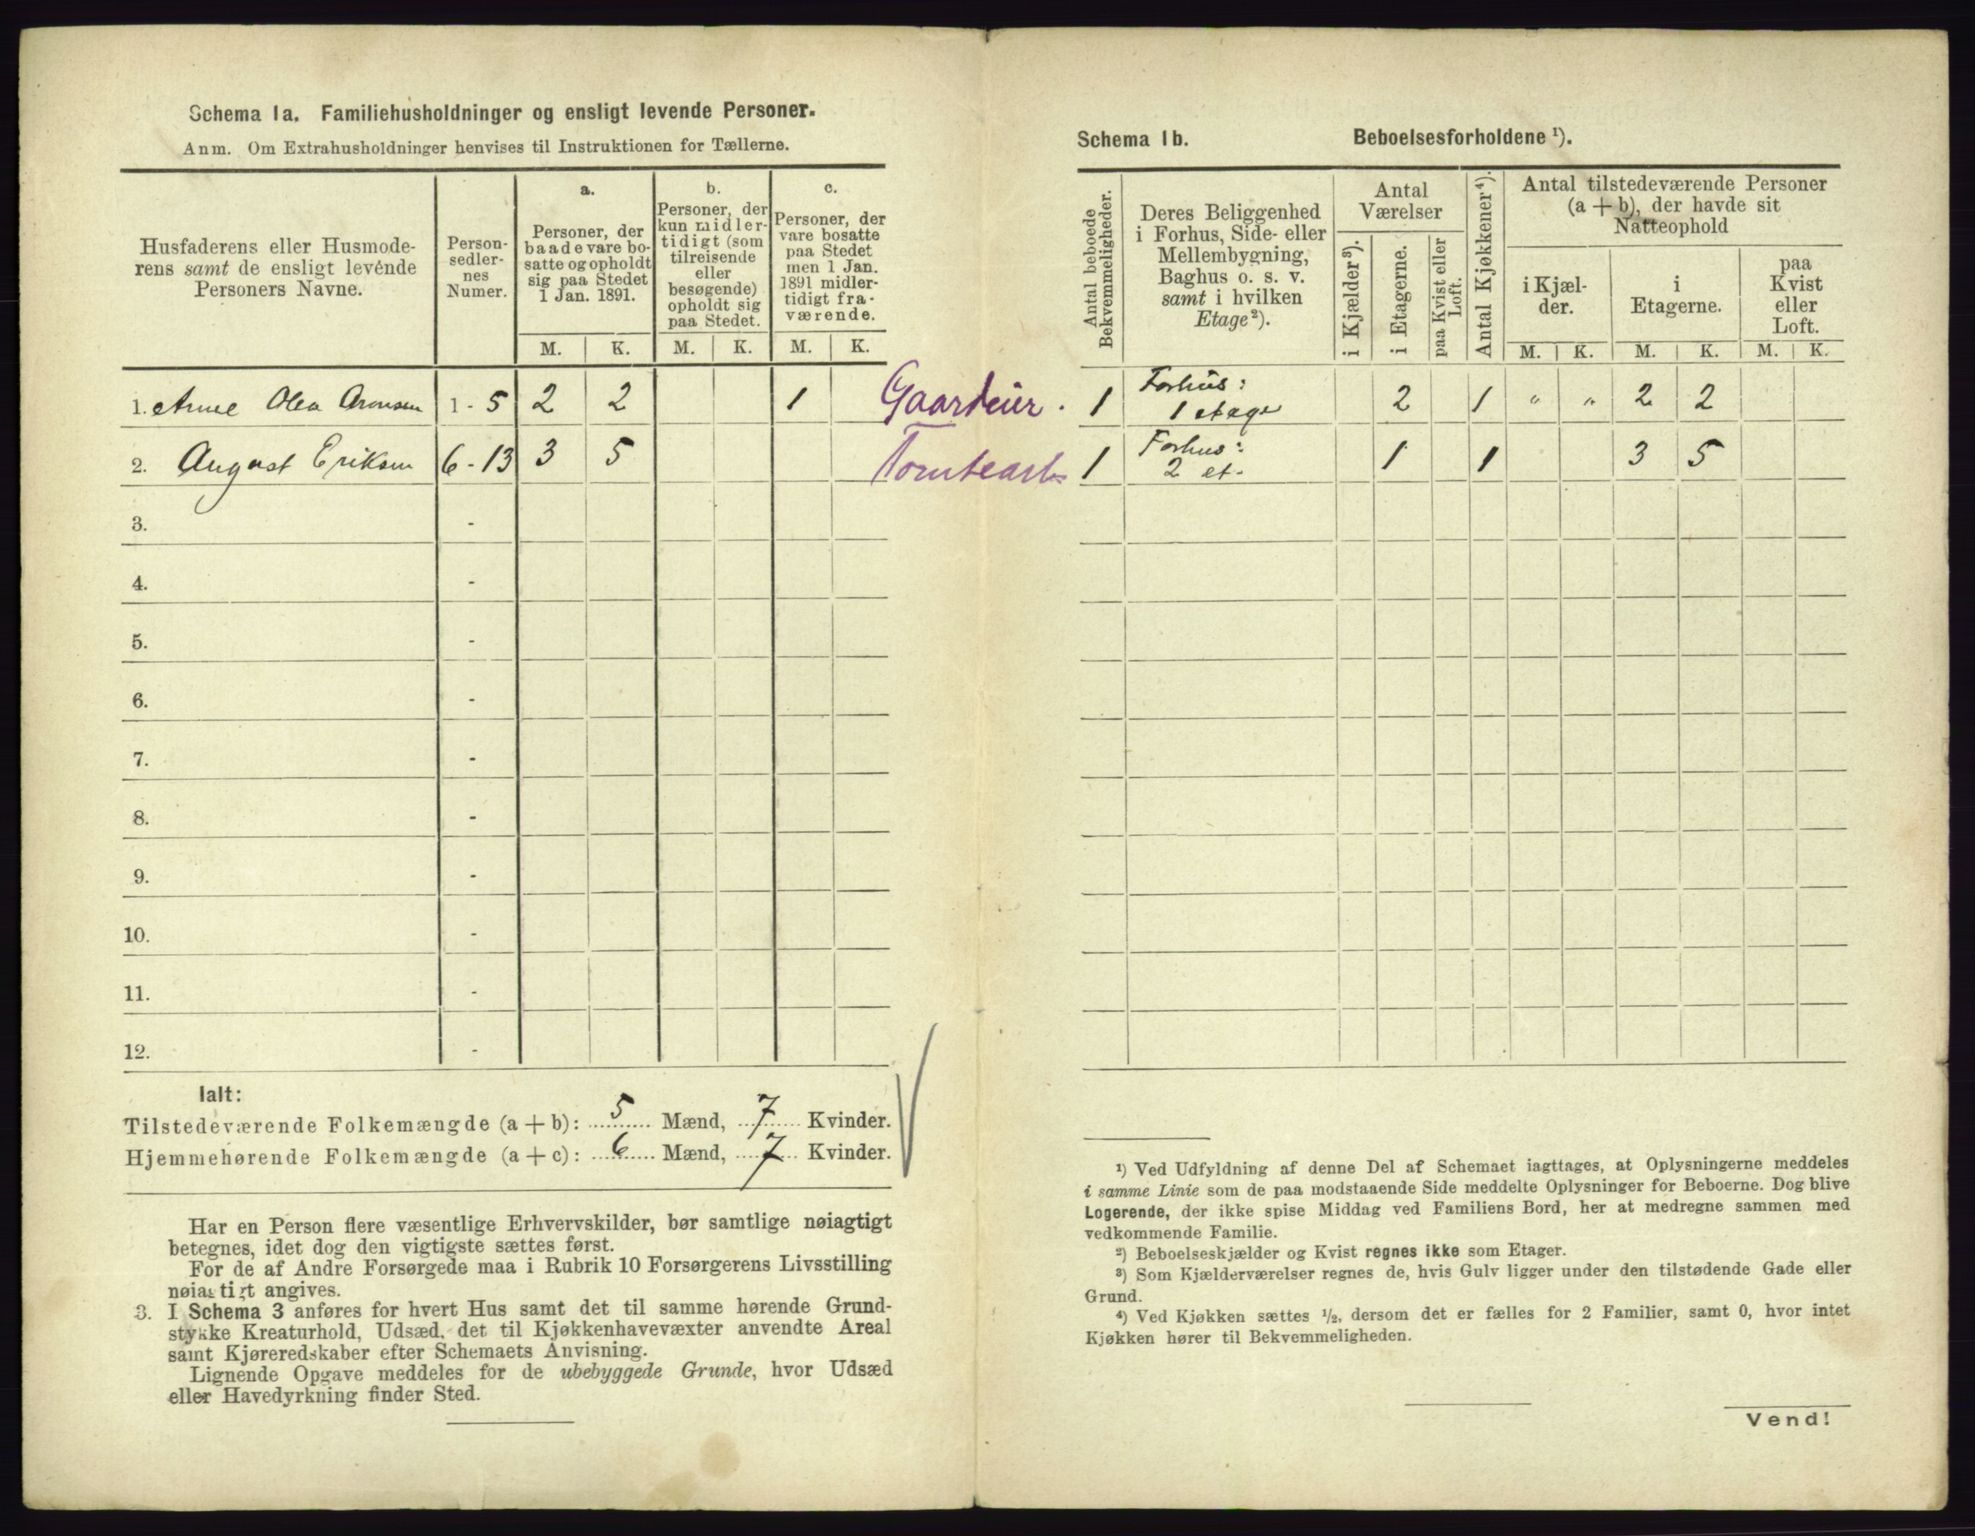 Schema 1a. Familiehusholdninger og ensligt levende Personer.
Anm. Om Extrahusholdninger henvises til Instruktionen for Tællerne.
Husfaderens eller Husmode-
rens samt de ensligt levénde
Personers Navne.
Person-
sedler-
nes
Numer.
a.
Personer, der
baade vare bo-
satte og opholdt
sig paa Stedet
1 Jan. 1891.
b.
Personer, der
kun midler-
tidigt (som
tilreisende
eller
besøgende)
opholdt sig
paa Stedet.
c.
Personer, der
vare bosatte
paa Stedet
men 1 Jan.
1891 midler-
tidigt fra-
værende.
M. K. M. K. M. K.
1. Olea Aronsen 1 - 5 2 2 1 Gaardeier.
2. August Eriksen 6 - 13 3 5
3. -
4. -
5. -
6. -
7. -
8. -
9. -
10. -
11. -
12. -
Ialt:
Tilstedeværende Folkemængde (a + b): 5 Mænd, 7 Kvinder.
Hjemmehørende Folkemængde (a + c): 6 Mænd, 7 Kvinder.
Har en Person flere væsentlige Erhvervskilder, bør samtlige nøiagtigt
betegnes, idet dog den vigtigste sættes først.
For de af Andre Forsørgede maa i Rubrik 10 Forsørgerens Livsstilling
nøiagtigt angives.
3. I Schema 3 anføres for hvert Hus samt det til samme hørende Grund-
stykke Kreaturhold, Udsæd, det til Kjøkkenhavevæxter anvendte Areal
samt Kjøreredskaber efter Schemaets Anvisning.
Lignende Opgave meddeles for de ubebyggede Grunde, hvor Udsæd
eller Havedyrkning finder Sted.
Schema 1b. Beboelsesforholdene ¹).
Antal beboede
Bekvemmeligheder.
Deres Beliggenhed
i Forhus, Side- eller
Mellembygning,
Baghus o. s. v.
samt i hvilken
Etage²).
Antal
Værelser
i Kjælder³).
i Etagerne.
paa Kvist eller
Loft.
Antal Kjøkkener⁴).
Antal tilstedeværende Personer
(a + b), der havde sit
Natteophold
i Kjæl-
der.
i
Etagerne.
paa
Kvist
eller
Loft.
M. K. M. K. M. K.
1 Forhus:
1 etage 2 1 " " 2 2
1 Forhus:
2 et. 1 1 3 5
¹) Ved Udfyldning af denne Del af Schemaet iagttages, at Oplysningerne meddeles
i samme Linie som de paa modstaaende Side meddelte Oplysninger for Beboerne. Dog blive
Logerende, der ikke spise Middag ved Familiens Bord, her at medregne sammen med
vedkommende Familie.
²) Beboelseskjælder og Kvist regnes ikke som Etager.
³) Som Kjælderværelser regnes de, hvis Gulv ligger under den tilstødende Gade eller
Grund.
⁴) Ved Kjøkken sættes ½, dersom det er fælles for 2 Familier, samt 0, hvor intet
Kjøkken hører til Bekvemmeligheden.
Vend!